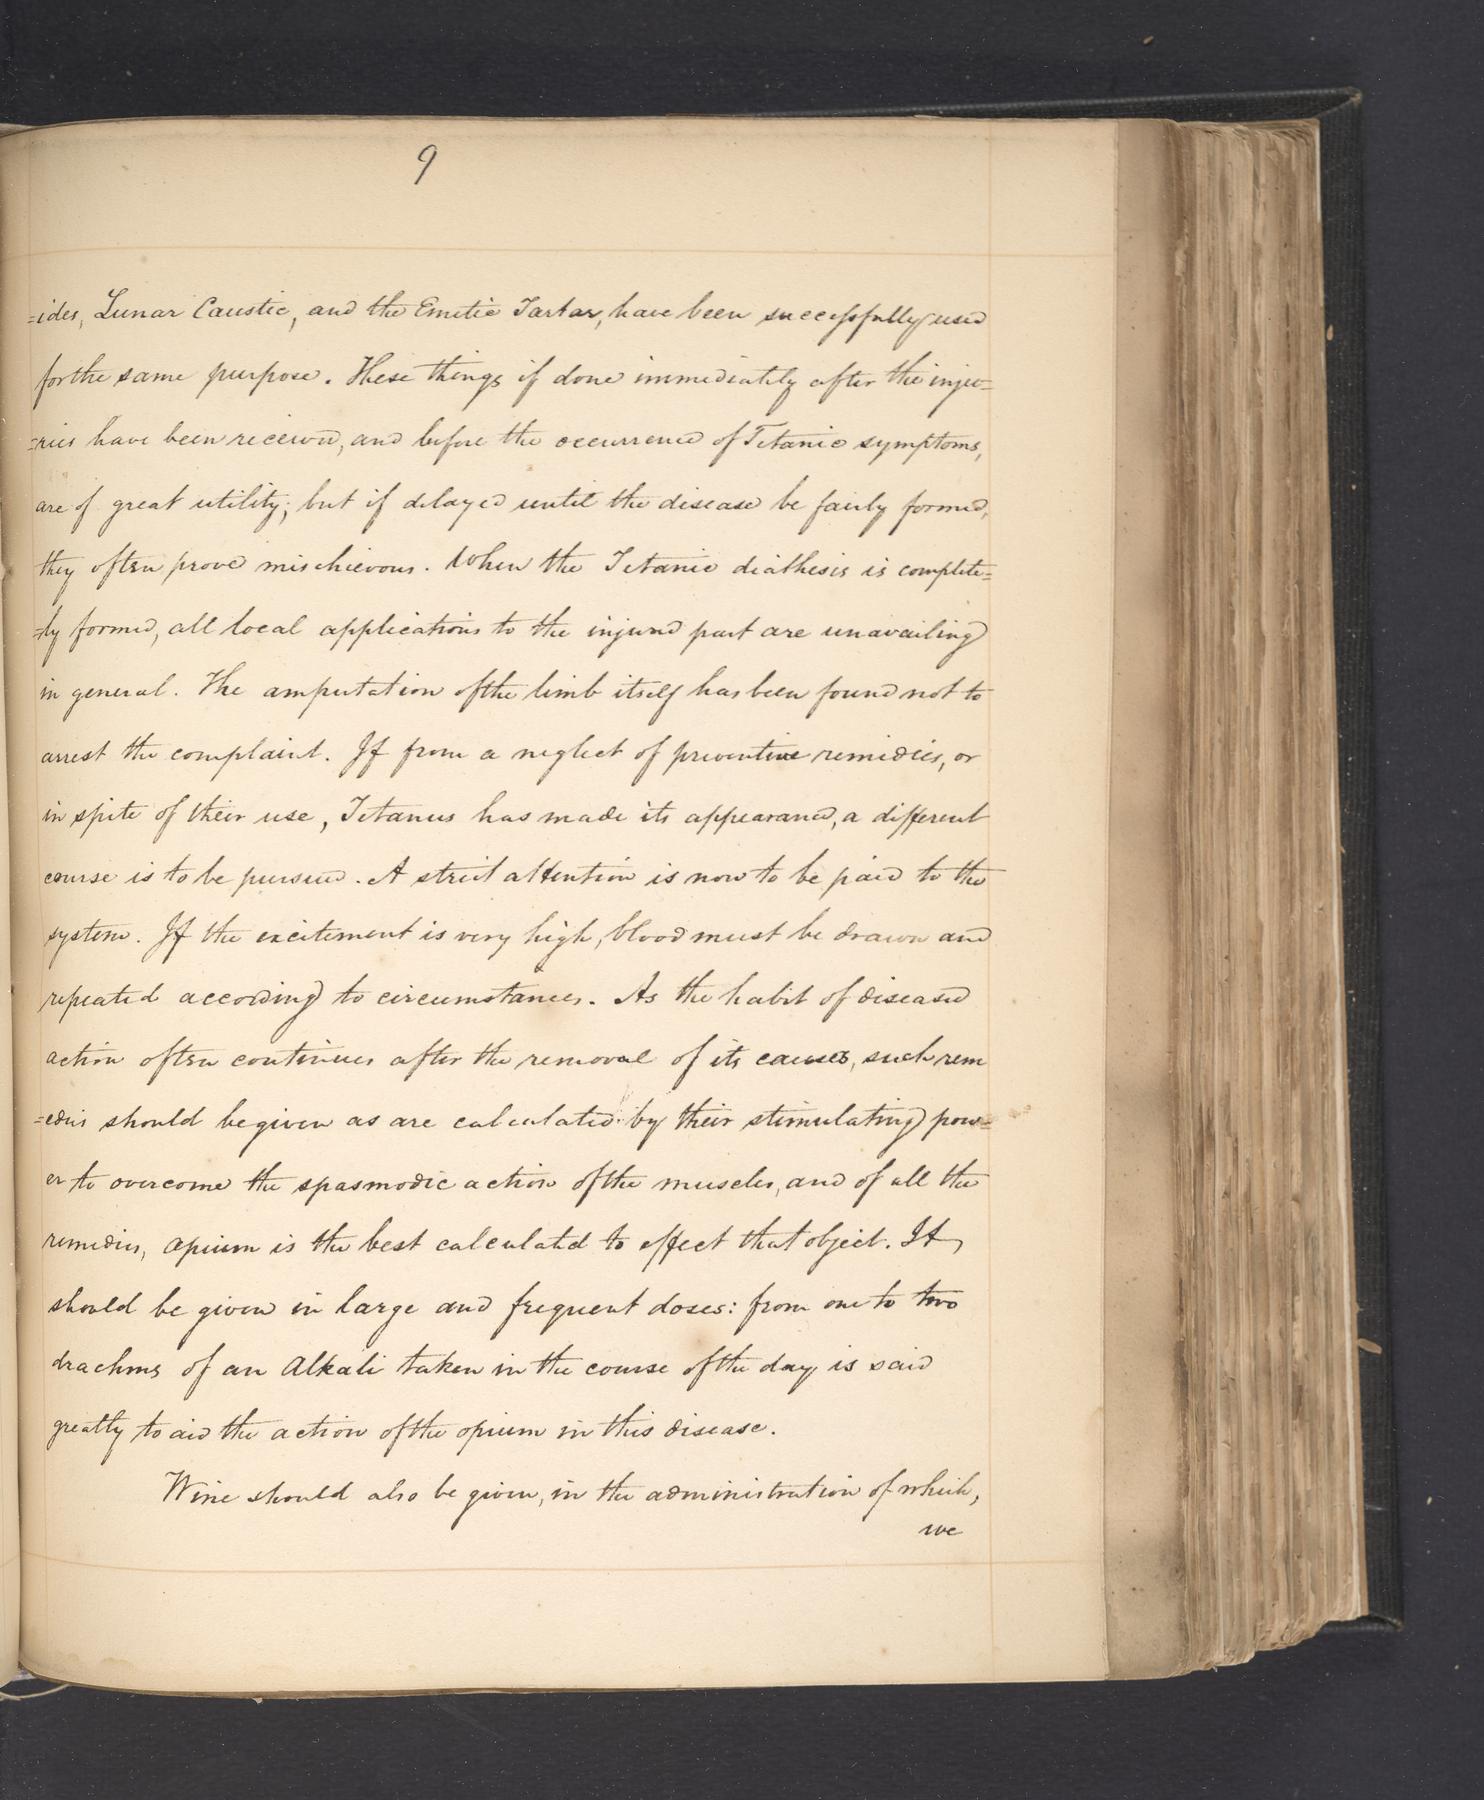 9
=ides, Lunar Caustic, and the Emetic Tartar, have been successfully used
for the same purpose. These things if done immediately after the inju=
=ries have been received, and before the occurrence of Tetanic symptoms,
are of great utility; but if delayed until the disease be fairly formed,
they often prove mischievous. When the Tetanic diathesis is complete=
=ly formed, all local applications to the injured part are unavailing
in general. The amputation of the limb itself has been found not to
arrest the complaint. If from a neglect of preventive remedies, or
in spite of their use, Tetanus has made its appearance, a different
course is to be pursued. A strict attention is now to be paid to the
system. If the excitement is very high, blood must be drawn and
repeated according to circumstances. As the habit of diseased
action often continues after the removal of its causes, such rem
=edies should be given as are calculated by their stimulating pow=
er to overcome the spasmodic action of the muscles, and of all the
remedies, opium is the best calculated to effect that object. It
should be given in large and frequent doses: from one to two
drachms of an Alkali taken in the course of the day is said
greatly to aid the action of the opium in this disease.
Wine should also be given, in the administration of which,
we